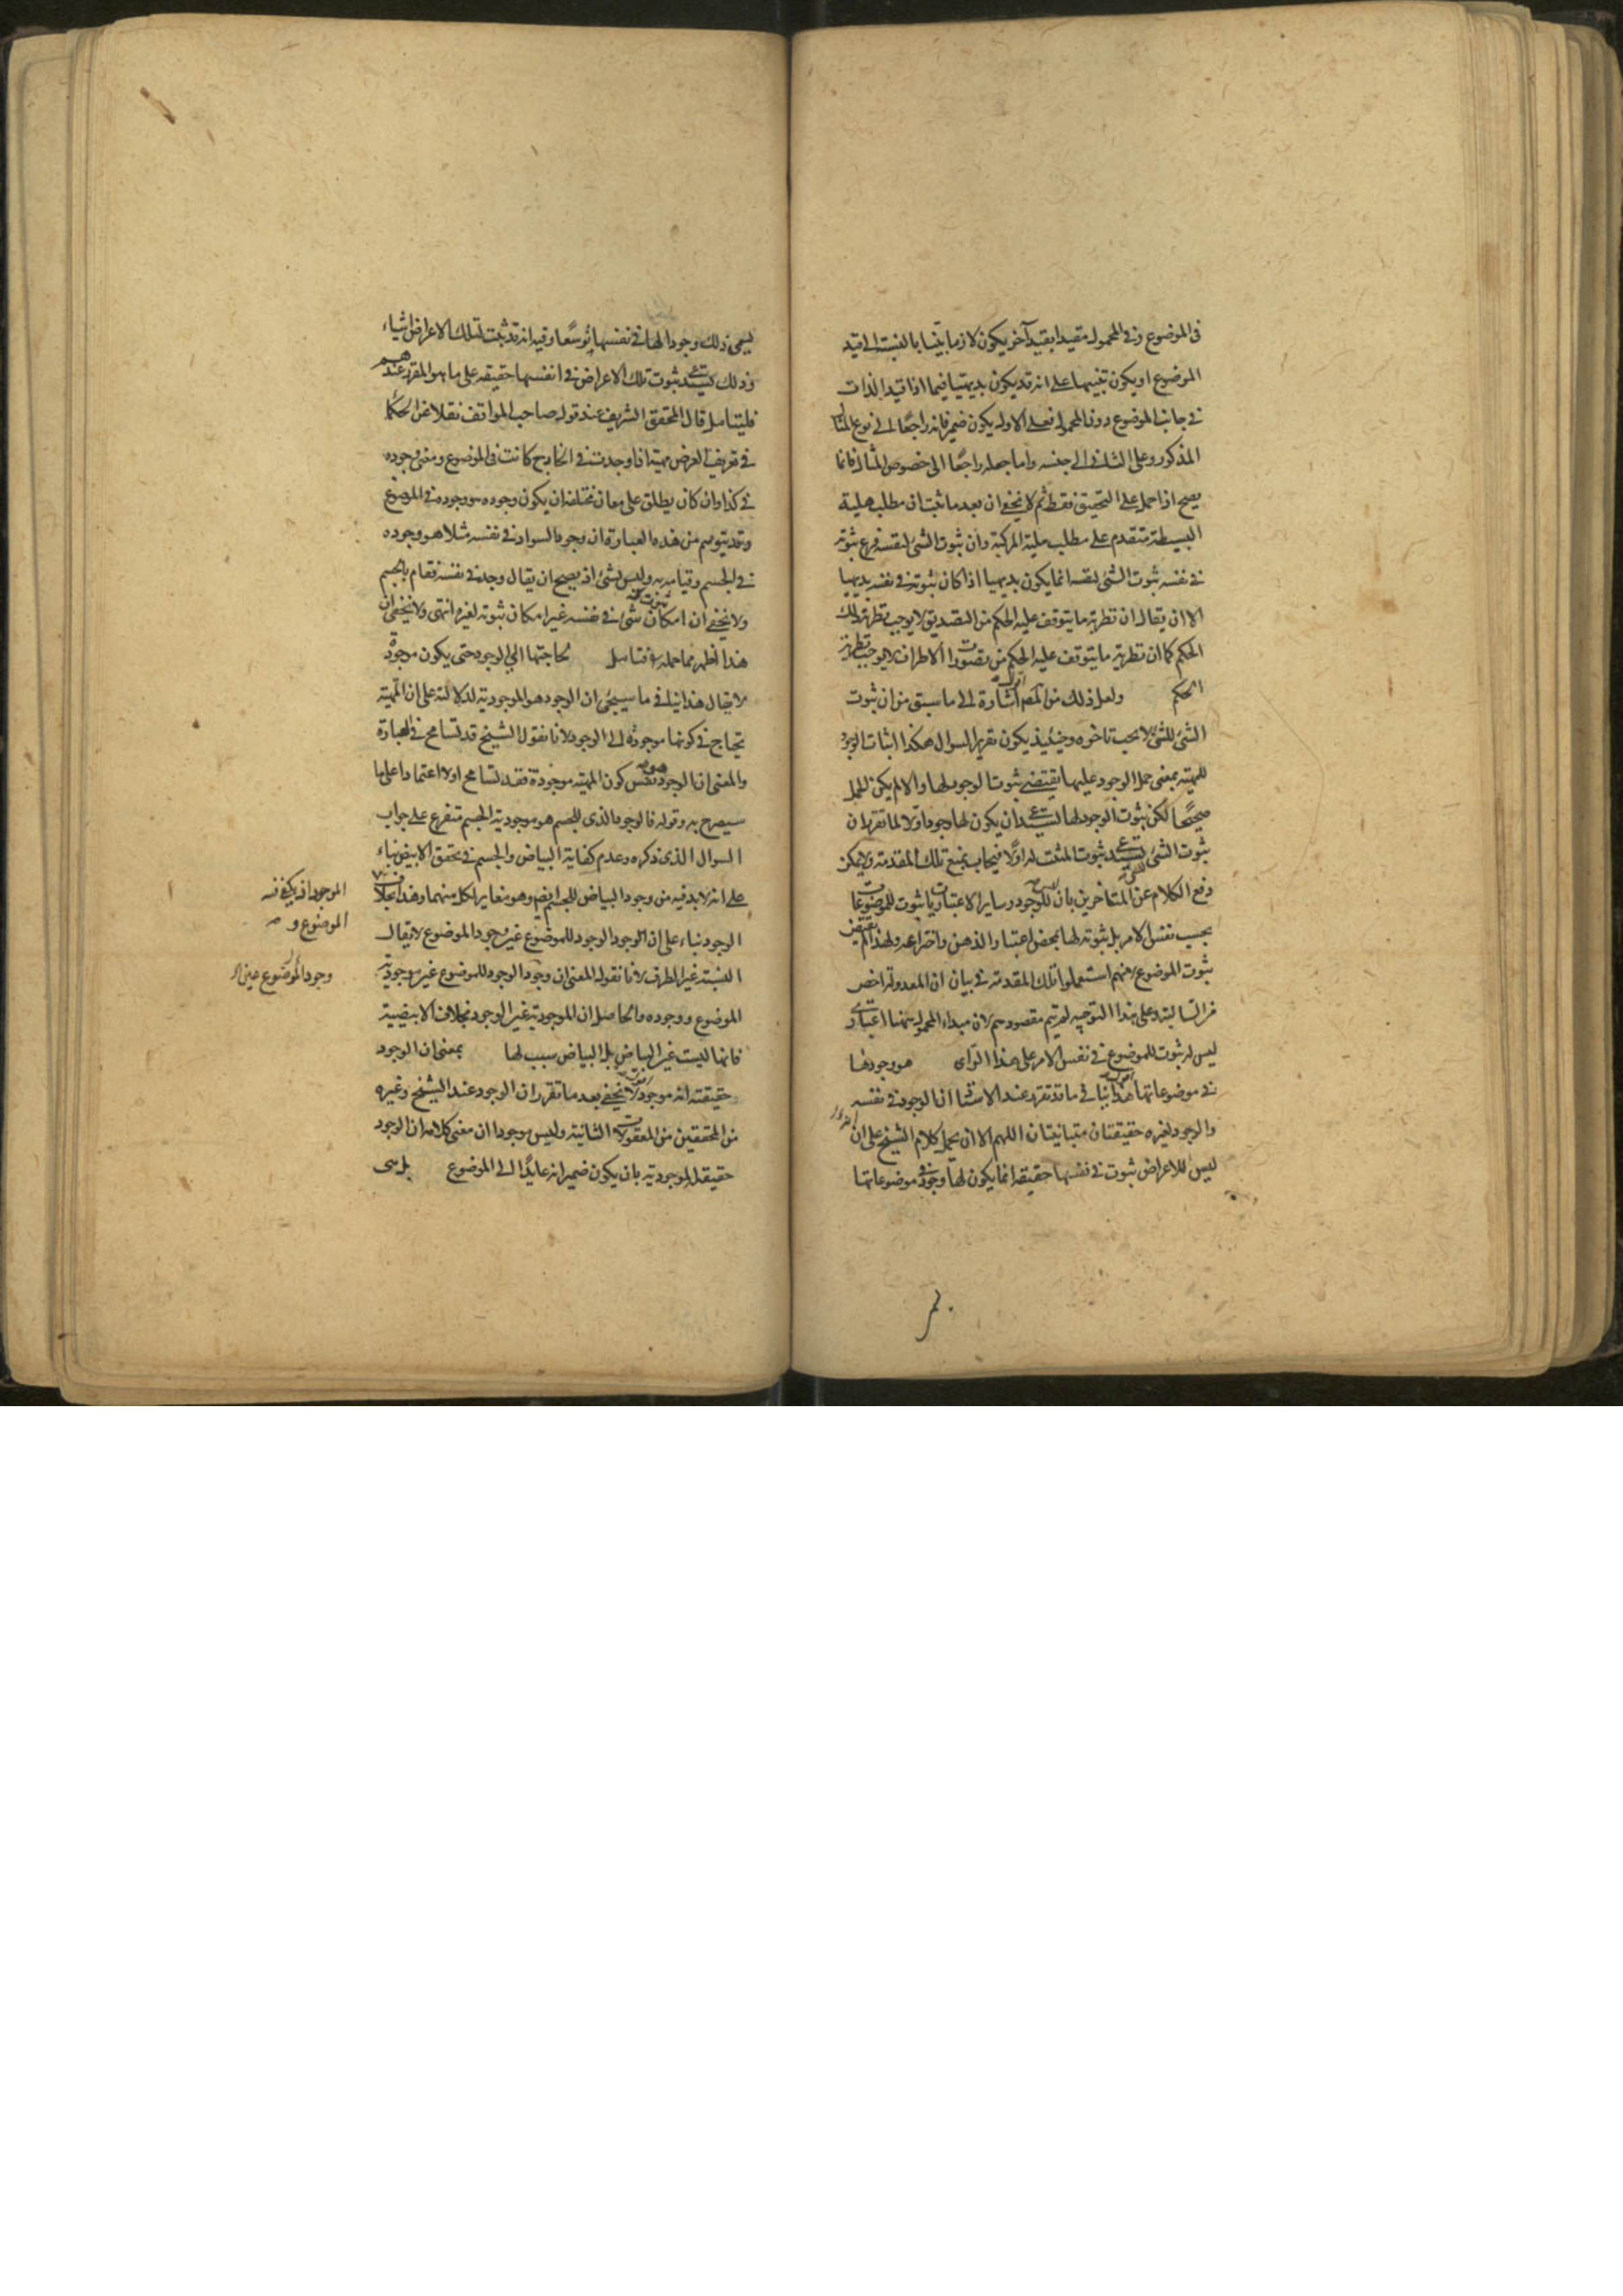 فى الموضوع وفى المحمول مقيدا بقيد آخر يكون لازما بينا بالنسبة الى قيد
الموضوع او يكون تنبيها على انه قد يكون بديهيا فيما اذا قيد الذات
فى جانب الموضوع دون المحمول فعلى الاول يكون ضمير فانه راجعا الى نوع المثال
المذكور وعلى الثانى الى جنسه واما جعله راجعا الى خصوص المثال فانما
يصح اذا حمل على التحقيق فقط ثم لا يخفى ان بعد ما ثبت ان مطلب هلية
البسيطة متقدم على مطلب هلية المركبة وان ثبوت الشئ لنفسه فرع ثبوته
فى نفسه ثبوت الشئ لنفسه انما يكون بديهيا اذا كان ثبوته فى نفسه بديهيا
الا ان يقال ان نظرية ما يتوقف عليه الحكم من التصديق لا يوجب نظرية ذلك
الحكم كما ان نظرية ما يتوقف عليه الحكم من تصورات الاطراف لا يوجب نظرية
الحكم ولعل ذلك من المصـ اشارة الى ما سبق من ان ثبوت
الشئ للشئ لا يجب تاخره وحينئذ يكون تقرير السوال هكذا اثبات الوجود
للمهية بمعنى حمل الوجود عليها يقتضى ثبوت الوجود لها والا لم يكن الحمل
صحيحا لكن ثبوت الوجود لها يستدعى ان يكون لها وجود اولا لما تقرر ان
ثبوت الشئ يستدعى ثبوت المثبت له اولا فيجاب بمنع تلك المقدمة ويمكن
دفع الكلام عن المتاخرين بان ليس للوجود وساير الاعتباريات ثبوت للموضوعات
بحسب نفس الامر بل ثبوته لها بمحض اعتبار الذهن واختراعه ولهذا لم يقتض
ثبوت الموضوع لانهم استعملوا تلك المقدمة فى بيان ان المعدولة اخص
من السالبة وعلى هذا التوجيه لم يتم مقصودهم لان مبداء المحمول منها اعتبارى
ليس له ثبوت للموضوع فى نفس الامر على هذا الراى هو وجودها
فى موضوعاتها اقول هذا ينافى ما قد تقرر عند الاستاد ان الوجود فى نفسه
والوجود لغيره حقيقتان متباينتان اللهم الا ان يحمل كلام الشيخ على ان
ليس للاعراض ثبوت فى نفسها حقيقة انما يكون لها وجود فى موضوعاتها
يسمى ذلك وجودا لها فى نفسها توسعا وفيه انه قد ثبت لتلك الاعراض اشياء
وذلك يستدعى ثبوت تلك الاعراض فى انفسها حقيقة على ما هو المقرر عندهم
فليتامل قال المحقق الشريف عند قول صاحب المواقف نقلا عن الحكما
فى تعريف العرض مهية اذا وجدت فى الخارج كانت فى الموضوع ومعنى وجوده
فى كذا وان كان يطلق على معان مختلفة ان يكون وجوده هو وجوده فى الموضوع
وقد يتوهم من هذه العبارة ان وجود السواد فى نفسه مثلا هو وجوده
فى الجسم وقيامه به وليس بشئ اذ يصح ان يقال وجد فى نفسه فقام بالجسم
ولا يخفى ان امكان ثبوت شئ فى نفسه غير امكان ثبوته لغيره انتهى ولا يخفى ان
هذا اظهر مما حمله فتامل لحاجتها الى الوجود حتى يكون موجودة
لا يقال هذا ينافى ما سيجئ ان الوجود هو الموجودية لدلالته على ان المهية
يحتاج فى كونها موجودة الى الوجود لانا نقول الشيخ قد تسامح فى العبارة
والمعنى ان الوجود هو نفس كون المهية موجودة فقد تسامح اولا اعتمادا على ما
سيصرح به وقوله فالوجود الذى للجسم هو موجودية الجسم متفرع على جواب
السوال الذى ذكره وعدم كفاية البياض والجسم فى تحقق الابيض بناء
على انه لا بد فيه من وجود البياض للجسم ايضا وهو مغاير لكل منهما وهذا بخلاف
الوجود بناء على ان الوجود الوجود للموضوع غير وجود الموضوع لا يقال
النسبة غير الطرف لانا نقول المعنى ان وجود الوجود للموضوع غير موجودية
الموضوع ووجوده والحاصل ان الموجودية غير الوجود بخلاف الابيضية
فانها ليست غير البياض بل البياض سبب لها بمعنى ان الوجود
حقيقته انه موجود اقول لا يخفى بعد ما تقرر ان الوجود عند الشيخ وغيره
من المحققين من المعقولات الثانية وليس موجودا ان معنى كلامه ان الوجود
حقيقة الموجودية بان يكون ضمير انه عايدا الى الموضوع بل هى
الموجود اذ يكفى فيه
الموضوع و
وجود الموضوع عين